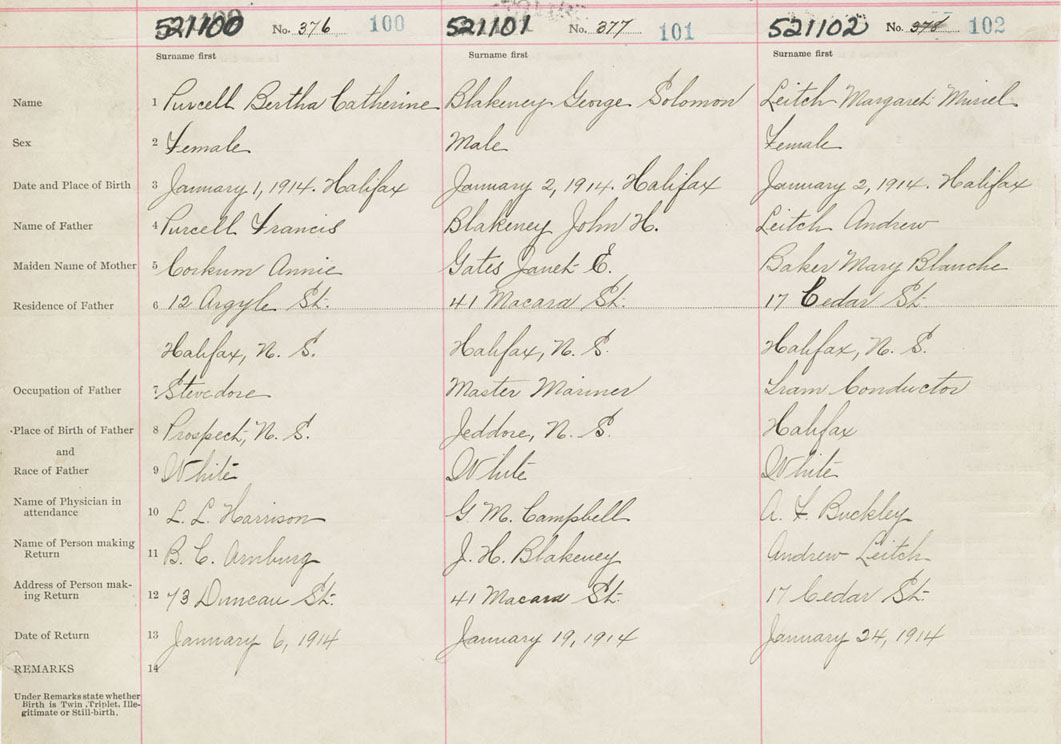 521100 No. 376 100 521101 No. 377 101 521102 No. 378 102
Surname first Surname first Surname first
Name 1 Purcell Bertha Catherine Blakeney George Solomon Leitch Margaret Muriel
Sex 2 Female Male Female
Date and Place of Birth 3 January 1, 1914. Halifax January 2, 1914. Halifax January 2, 1914. Halifax
Name of Father 4 Purcell Francis Blakeney John H. Leitch Andrew
Maiden Name of Mother 5 Corkum Annie Gates Janet E. Baker Mary Blanche
Residence of Father 6 12 Argyle St. 41 Macara St. 17 Cedar St.
Halifax, N. S. Halifax, N. S. Halifax, N. S.
Occupation of Father 7 Stevedore Master Mariner Tram Conductor
Place of Birth of Father 8 Prospect, N. S. Jeddore, N. S. Halifax
and
Race of Father 9 White White White
Name of Physician in
attendance 10 L. L. Harrison G. M. Campbell A. F. Buckley
Name of Person making
Return 11 B. C. Arnburg J. H. Blakeney Andrew Leitch
Address of Person mak-
ing Return 12 73 Duncan St. 41 Macara St. 17 Cedar St.
Date of Return 13 January 6, 1914 January 19, 1914 January 24, 1914
REMARKS 14
Under Remarks state whether
Birth is Twin, Triplet, Ille-
gitimate or Still-birth.